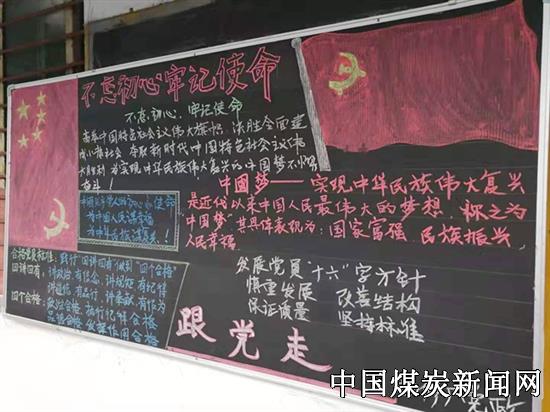 不忘初心 牢记使命
不忘初心、牢记使命
高举中国特色社会主义伟大旗帜，决胜全面建
成小康社会 夺取新时代中国特色社会主义伟
大胜利 为实现中华民族伟大复兴的中国梦不懈
奋斗！
为中国人民谋幸福
为中华民族谋复兴！
中國梦——实现中华民族伟大复兴
是近代以来中国人民最伟大的梦想，称之为
中国梦”其具体表现为：国家富强、民族振兴、
人民幸福。
合格党员标准：践行"四讲四有"做到"四个合格"
四讲四有：讲政治、有信念，讲规矩、有纪律
讲道德、有品行，讲奉献、有作为
四个合格：政治合格、执行纪律合格
品德合格、发挥作用合格
发展党员"十六"字方针
慎重发展 改善结构
保证质量 坚持标准
跟党走
中国煤炭新闻网